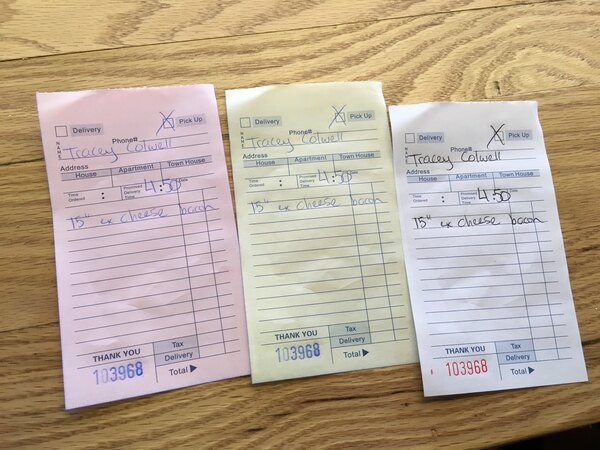 Delivery Pick Up
NAME Phone#
Tracey Colwell
Address
House Apartment Town House
Time Ordered : Promised Delivery Time 4:50 Date
15" ex cheese bacon
THANK YOU Tax
Delivery
103968 Total
Delivery Pick Up
NAME Phone#
Tracey Colwell
Address
House Apartment Town House
Time Ordered : Promised Delivery Time 4:50 Date
15" ex cheese bacon
THANK YOU Tax
Delivery
103968 Total
Delivery Pick Up
NAME Phone#
Tracey Colwell
Address
House Apartment Town House
Time Ordered : Promised Delivery Time 4:50 Date
15" ex cheese bacon
THANK YOU Tax
Delivery
103968 Total